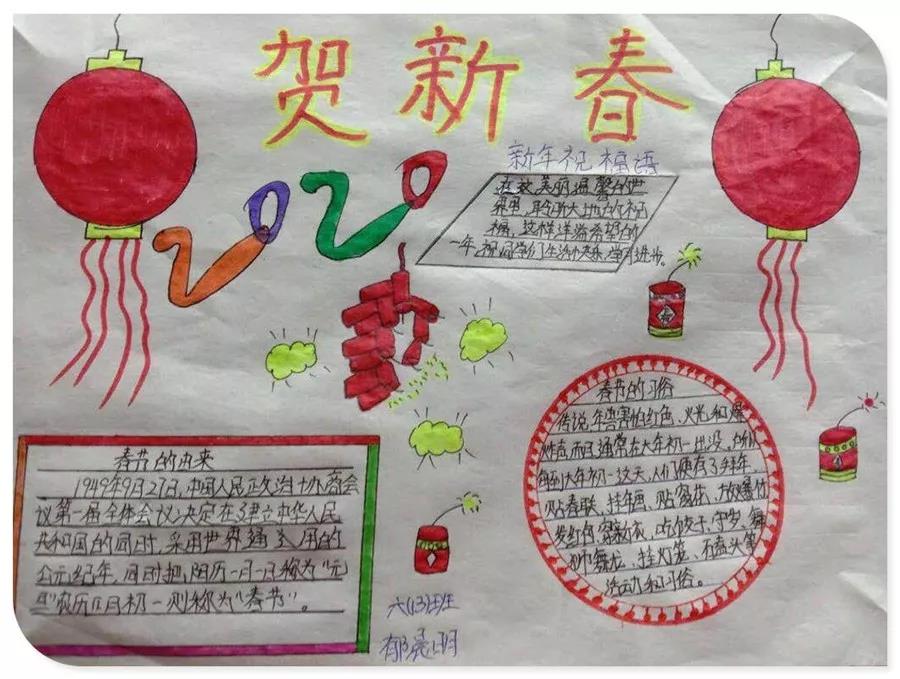 贺新春
2020
新年祝福语
在这美丽温馨的世
界里,聆听大地的祝
福,这样洋溢希望的
一年,祝同学们生活快乐,学习进步。
春节的由来
1949年9月27日,中国人民政治协商会
议第一届全体会议决定在建立中华人民
共和国的同时,采用世界通用的
公元纪年,同时把阳历一月一日称为“元
旦”农历正月初一则称为“春节”。
春节的习俗
传说,年兽害怕红色、火光和爆
炸声,而且通常在大年初一出没,所以
每到大年初一这天,人们便有了拜年、
贴春联、挂年画、贴窗花、放爆竹
发红包、穿新衣、吃饺子、守岁、舞
狮舞龙、挂灯笼、磕头等
活动和习俗。
六(13)班
郁晨明